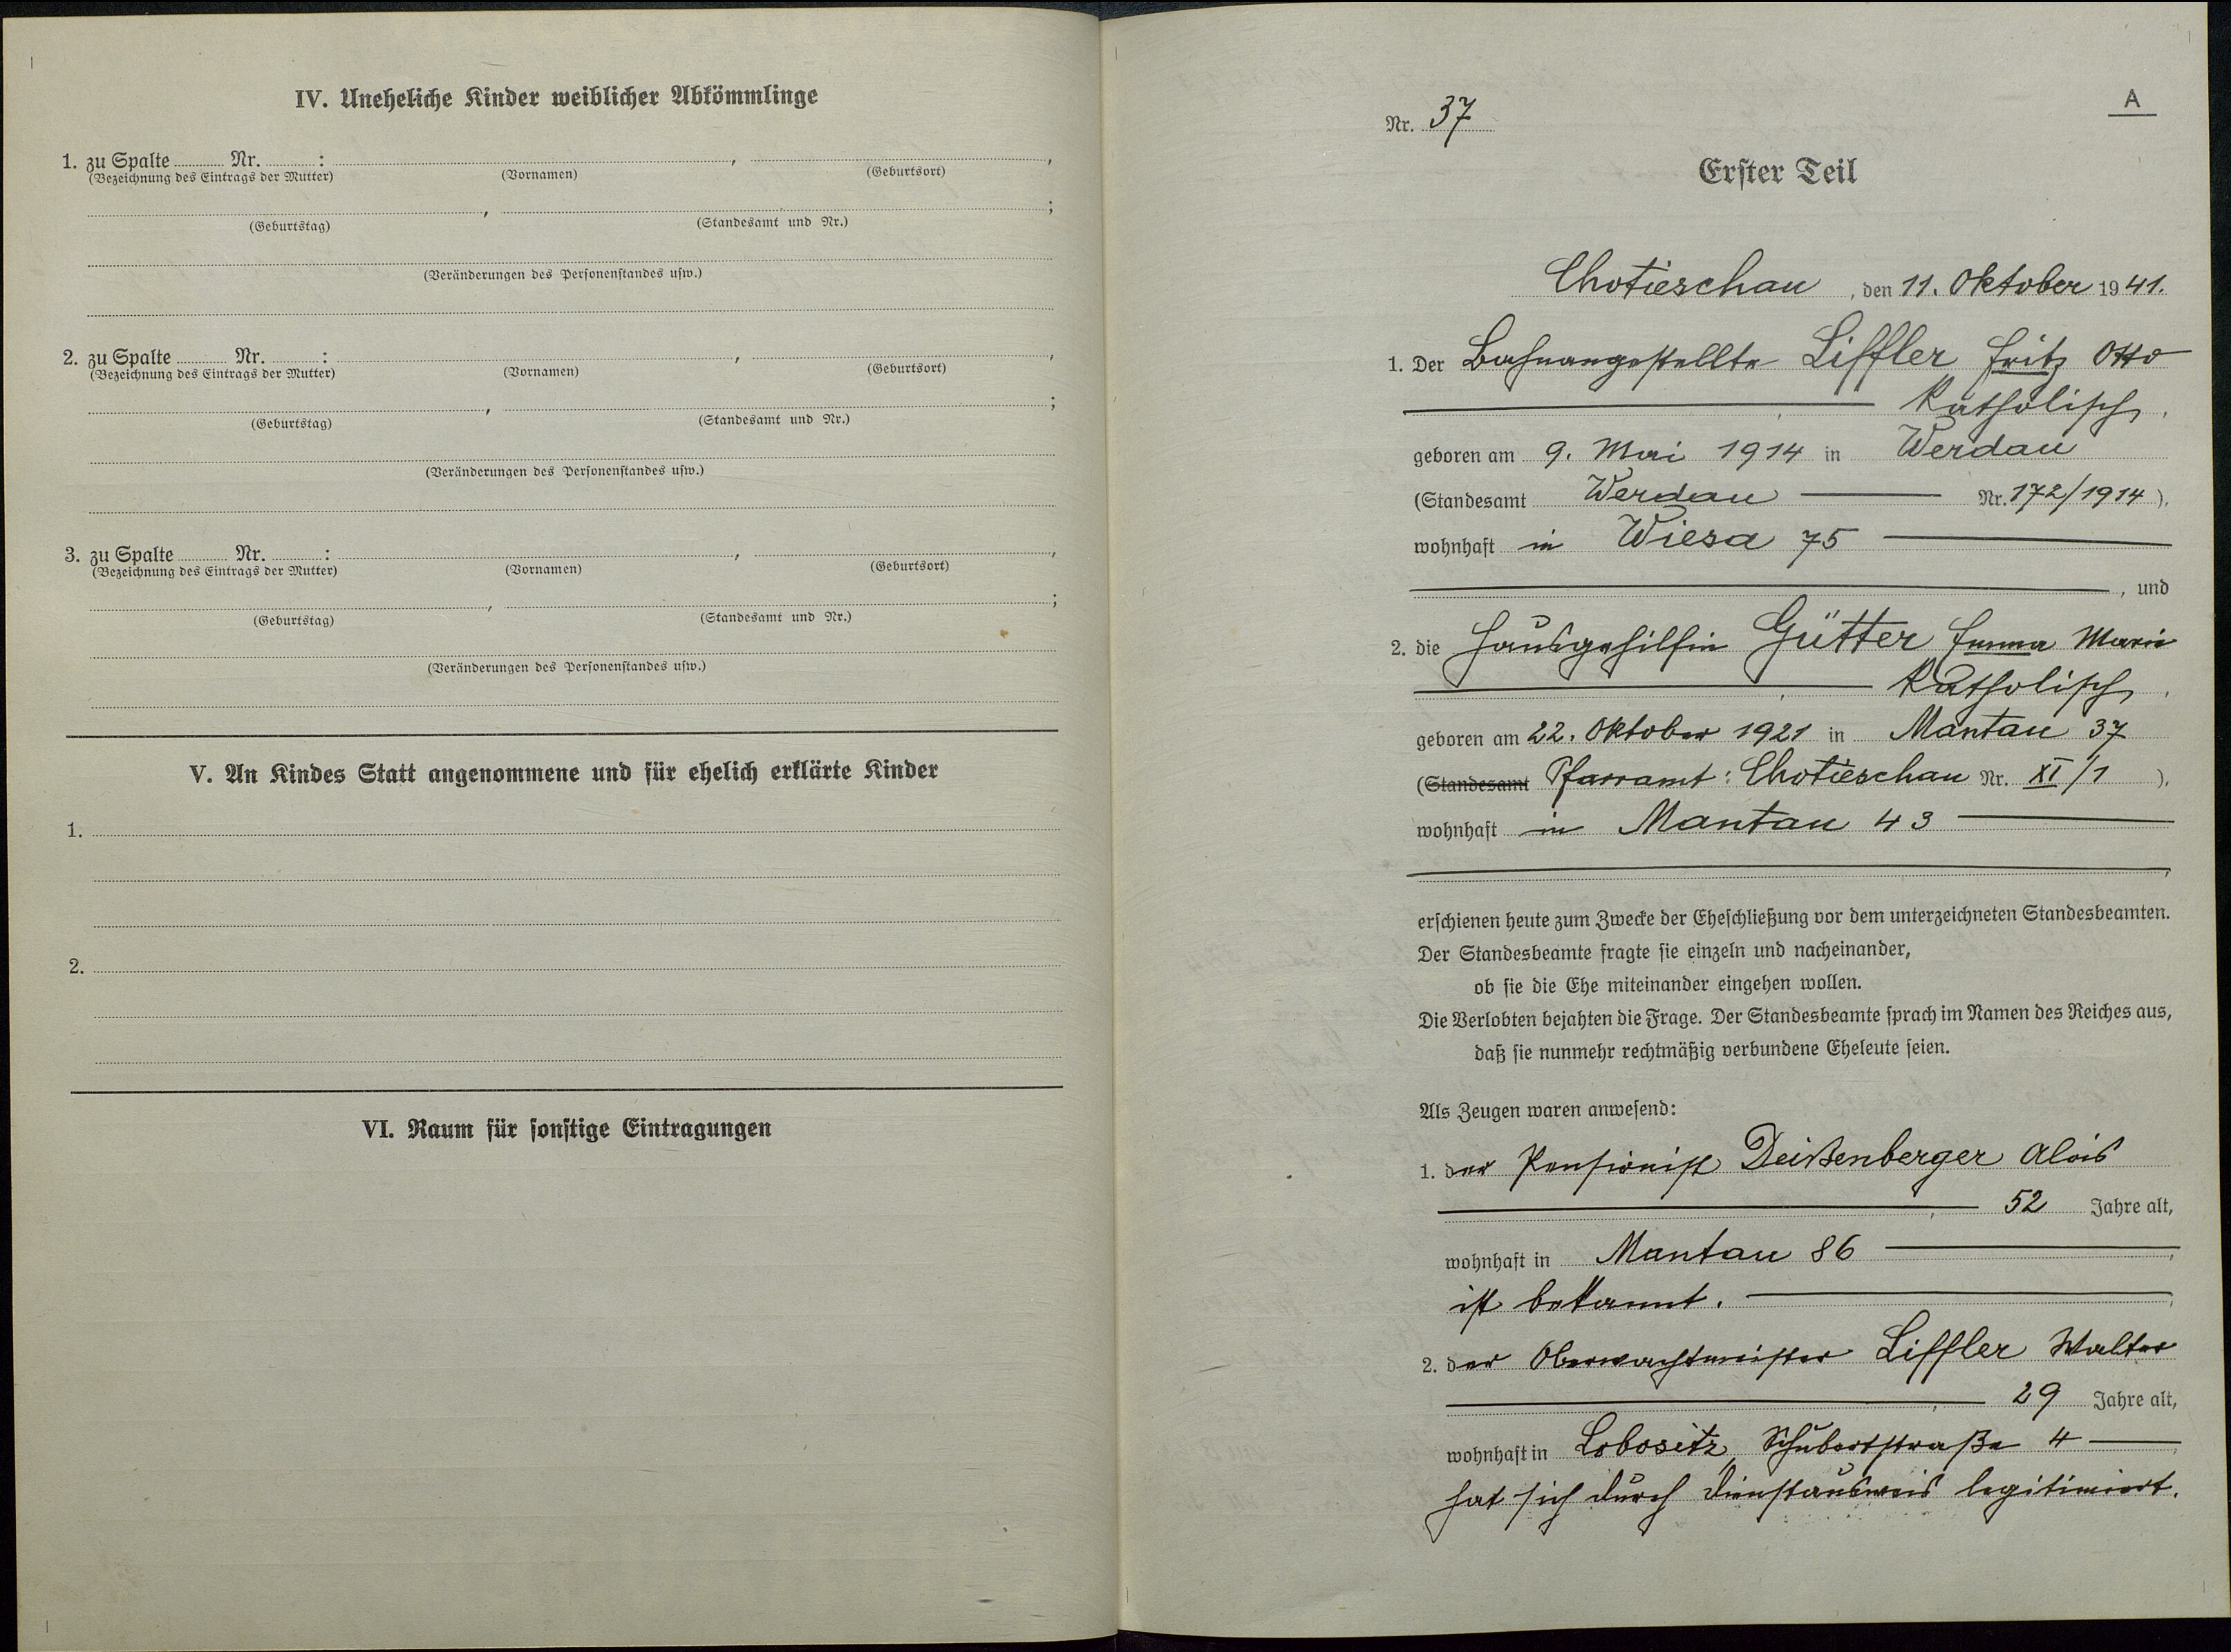 IV. Uneheliche Kinder weiblicher Abkömmlinge
1. zu Spalte Nr. : , ,
(Bezeichnung des Eintrags der Mutter) (Vornamen) (Geburtsort)
, ;
(Geburtstag) (Standesamt und Nr.)
(Veränderungen des Personenstandes usw.)
2. zu Spalte Nr. : , ,
(Bezeichnung des Eintrags der Mutter) (Vornamen) (Geburtsort)
, ;
(Geburtstag) (Standesamt und Nr.)
(Veränderungen des Personenstandes usw.)
3. zu Spalte Nr. : , ,
(Bezeichnung des Eintrags der Mutter) (Vornamen) (Geburtsort)
, ;
(Geburtstag) (Standesamt und Nr.)
(Veränderungen des Personenstandes usw.)
V. An Kindes Statt angenommene und für ehelich erklärte Kinder
1.
2.
VI. Raum für sonstige Eintragungen
A
Nr. 37
Erster Teil
Chotieschau, den 11. Oktober 1941.
1. Der Bahnangestellte Liffler Fritz Otto
— , Katholisch,
geboren am 9. Mai 1914 in Werdau
(Standesamt Werdau — Nr. 172/1914),
wohnhaft in Wiesa 75 —
—, und
2. die Hausgehilfin Gütter Emma Marie
— , Katholisch,
geboren am 22. Oktober 1921 in Mantau 37
(Standesamt Pfarramt: Chotieschau Nr. XI/1),
wohnhaft in Mantau 43 —
— ,
erschienen heute zum Zwecke der Eheschließung vor dem unterzeichneten Standesbeamten.
Der Standesbeamte fragte sie einzeln und nacheinander,
ob sie die Ehe miteinander eingehen wollen.
Die Verlobten bejahten die Frage. Der Standesbeamte sprach im Namen des Reiches aus,
daß sie nunmehr rechtmäßig verbundene Eheleute seien.
Als Zeugen waren anwesend:
1. der Pensionist Deißenberger Alois
— , 52 Jahre alt,
wohnhaft in Mantau 86 — ,
ist bekannt. — ,
2. der Oberwachtmeister Liffler Walter
— , 29 Jahre alt,
wohnhaft in Lobositz, Schubertstraße 4 —
hat sich durch Dienstausweis legitimiert.